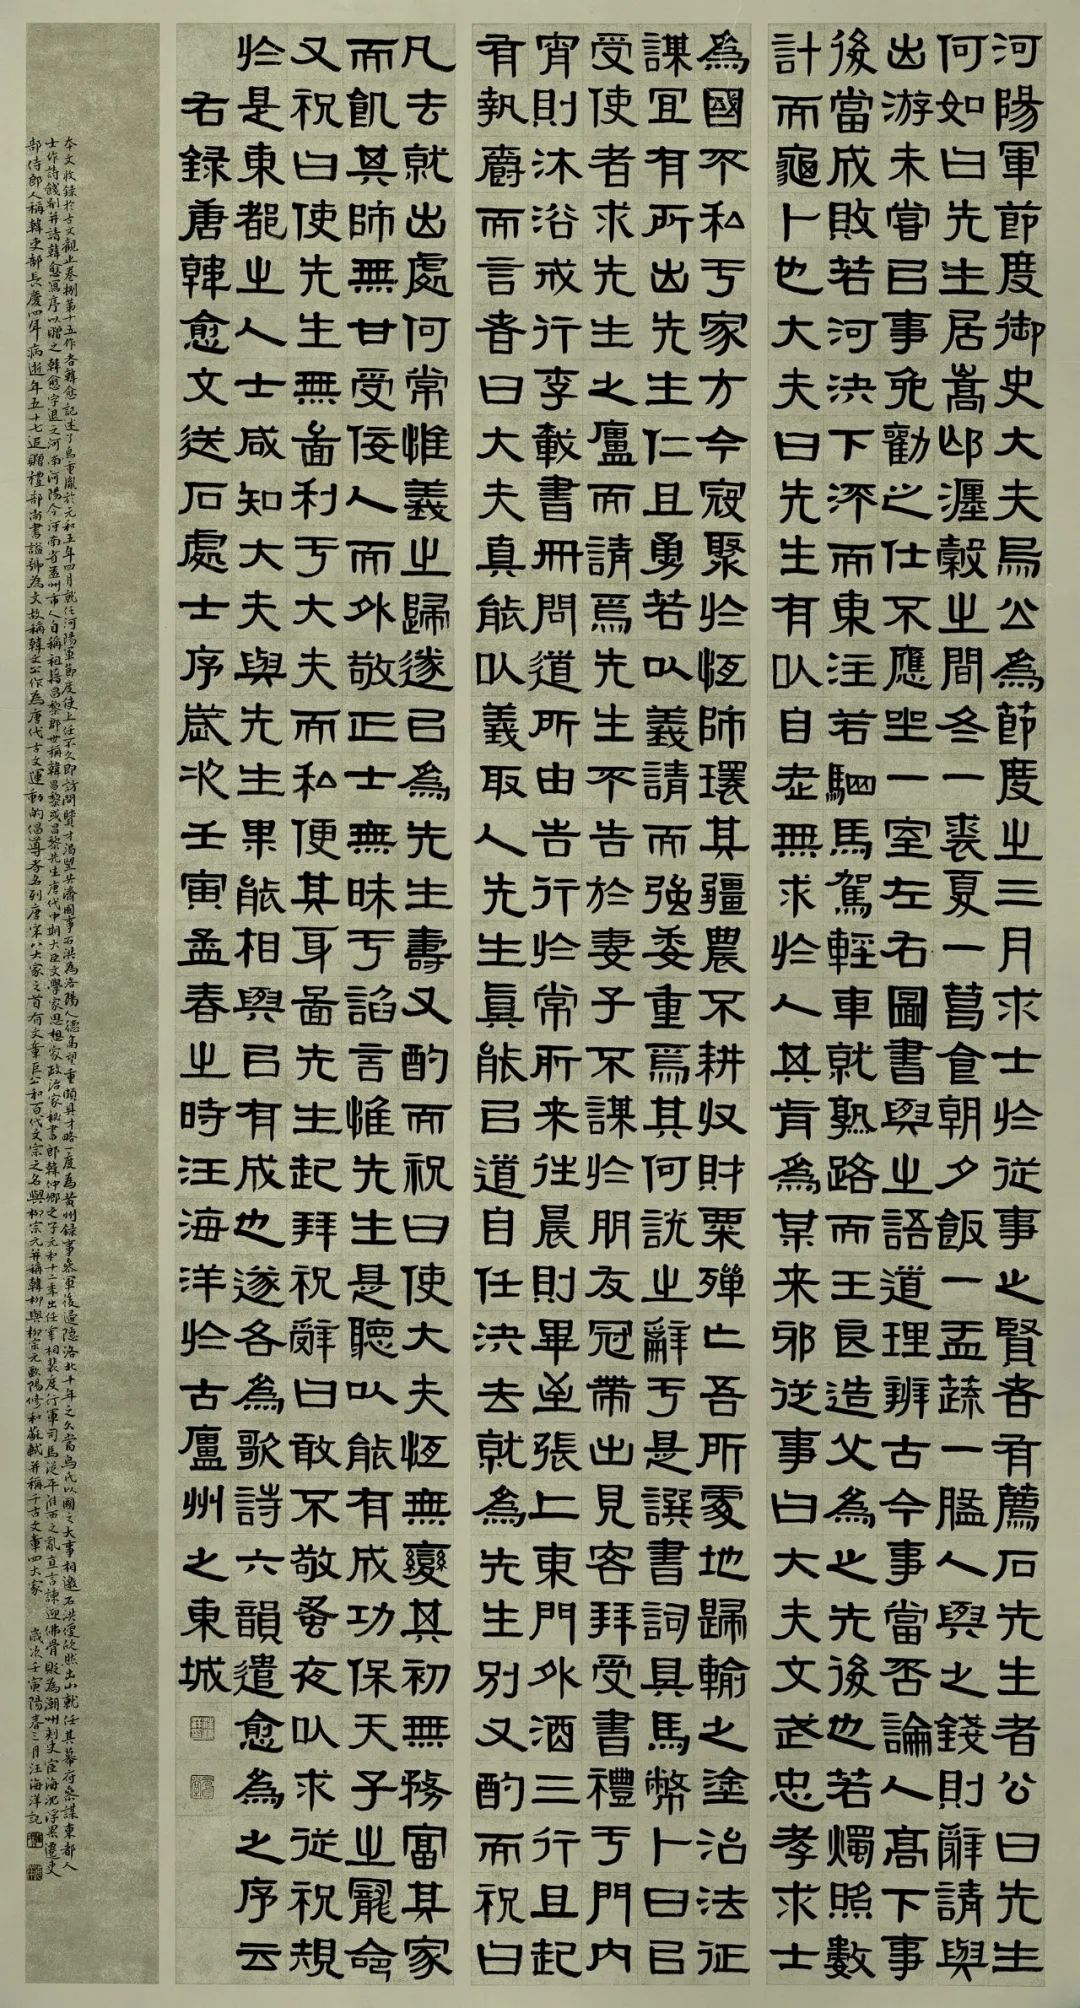 河陽軍節度御史大夫烏公為節度之三月求士於從事之賢者有薦石先生者公曰先生
何如曰先生居嵩邙瀍穀之間冬一裘夏一葛食朝夕飯一盂蔬一盤人與之錢則辭請與
出游未嘗以事免勸之仕不應坐一室左右圖書與之語道理辨古今事當否論人高下事
後當成敗若河決下流而東注若駟馬駕輕車就熟路而王良造父為之先後也若燭照數
計而龜卜也大夫曰先生有以自老無求於人其肯為某来邪從事曰大夫文武忠孝求士
為國不私于家方今寇聚於恆師環其疆農不耕收財粟殫亡吾所處地歸輸之塗治法征
謀宜有所出先生仁且勇若以義請而強委重焉其何說之辭于是譔書詞具馬幣卜日以
受使者求先生之廬而請焉先生不告於妻子不謀於朋友冠帶出見客拜受書禮于門內
宵則沐浴戒行李載書冊問道所由告行於常所来往晨則畢至張上東門外酒三行且起
有執爵而言者曰大夫真能以義取人先生真能以道自任決去就為先生別又酌而祝曰
凡去就出處何常惟義之歸遂以為先生壽又酌而祝曰使大夫恆無變其初無務富其家
而飢其師無甘受佞人而外敬正士無昧于諂言惟先生是聽以能有成功保天子之寵命
又祝曰使先生無圖利于大夫而私便其身圖先生起拜祝辭曰敢不敬蚤夜以求從祝規
於是東都之人士咸知大夫與先生果能相與以有成也遂各為歌詩六韻遣愈為之序云
右錄唐韓愈文送石處士序歲次壬寅孟春之時汪海洋於古廬州之東城
本文收錄於古文觀止卷捌第十五作者韓愈記述了烏重胤於元和五年四月就任河陽軍節度使上任不久即訪問賢才渴望共濟國事石洪為洛陽人德高望重頗具才略一度為黃州錄事參軍後退隱洛北十年之久當烏氏以國之大事相邀石洪便欣然出山就任其幕府參謀東都人
士作詩餞別并請韓愈寫序以贈之韓愈字退之河南河陽今河南省孟州市人自稱祖籍昌黎郡世稱韓昌黎或昌黎先生唐代中期大臣文學家思想家政治家秘書郎韓仲卿之子元和十二年出任宰相裴度行軍司馬從平淮西之亂直言諫迎佛骨貶為潮州刺史宦海沉浮累遷吏
部侍郎人稱韓吏部長慶四年病逝年五十七追贈禮部尚書諡號為文故稱韓文公作為唐代古文運動的倡導者名列唐宋八大家之首有文章巨公和百代文宗之名與柳宗元并稱韓柳與柳宗元歐陽修和蘇軾并稱千古文章四大家 歲次壬寅陽春三月汪海洋記